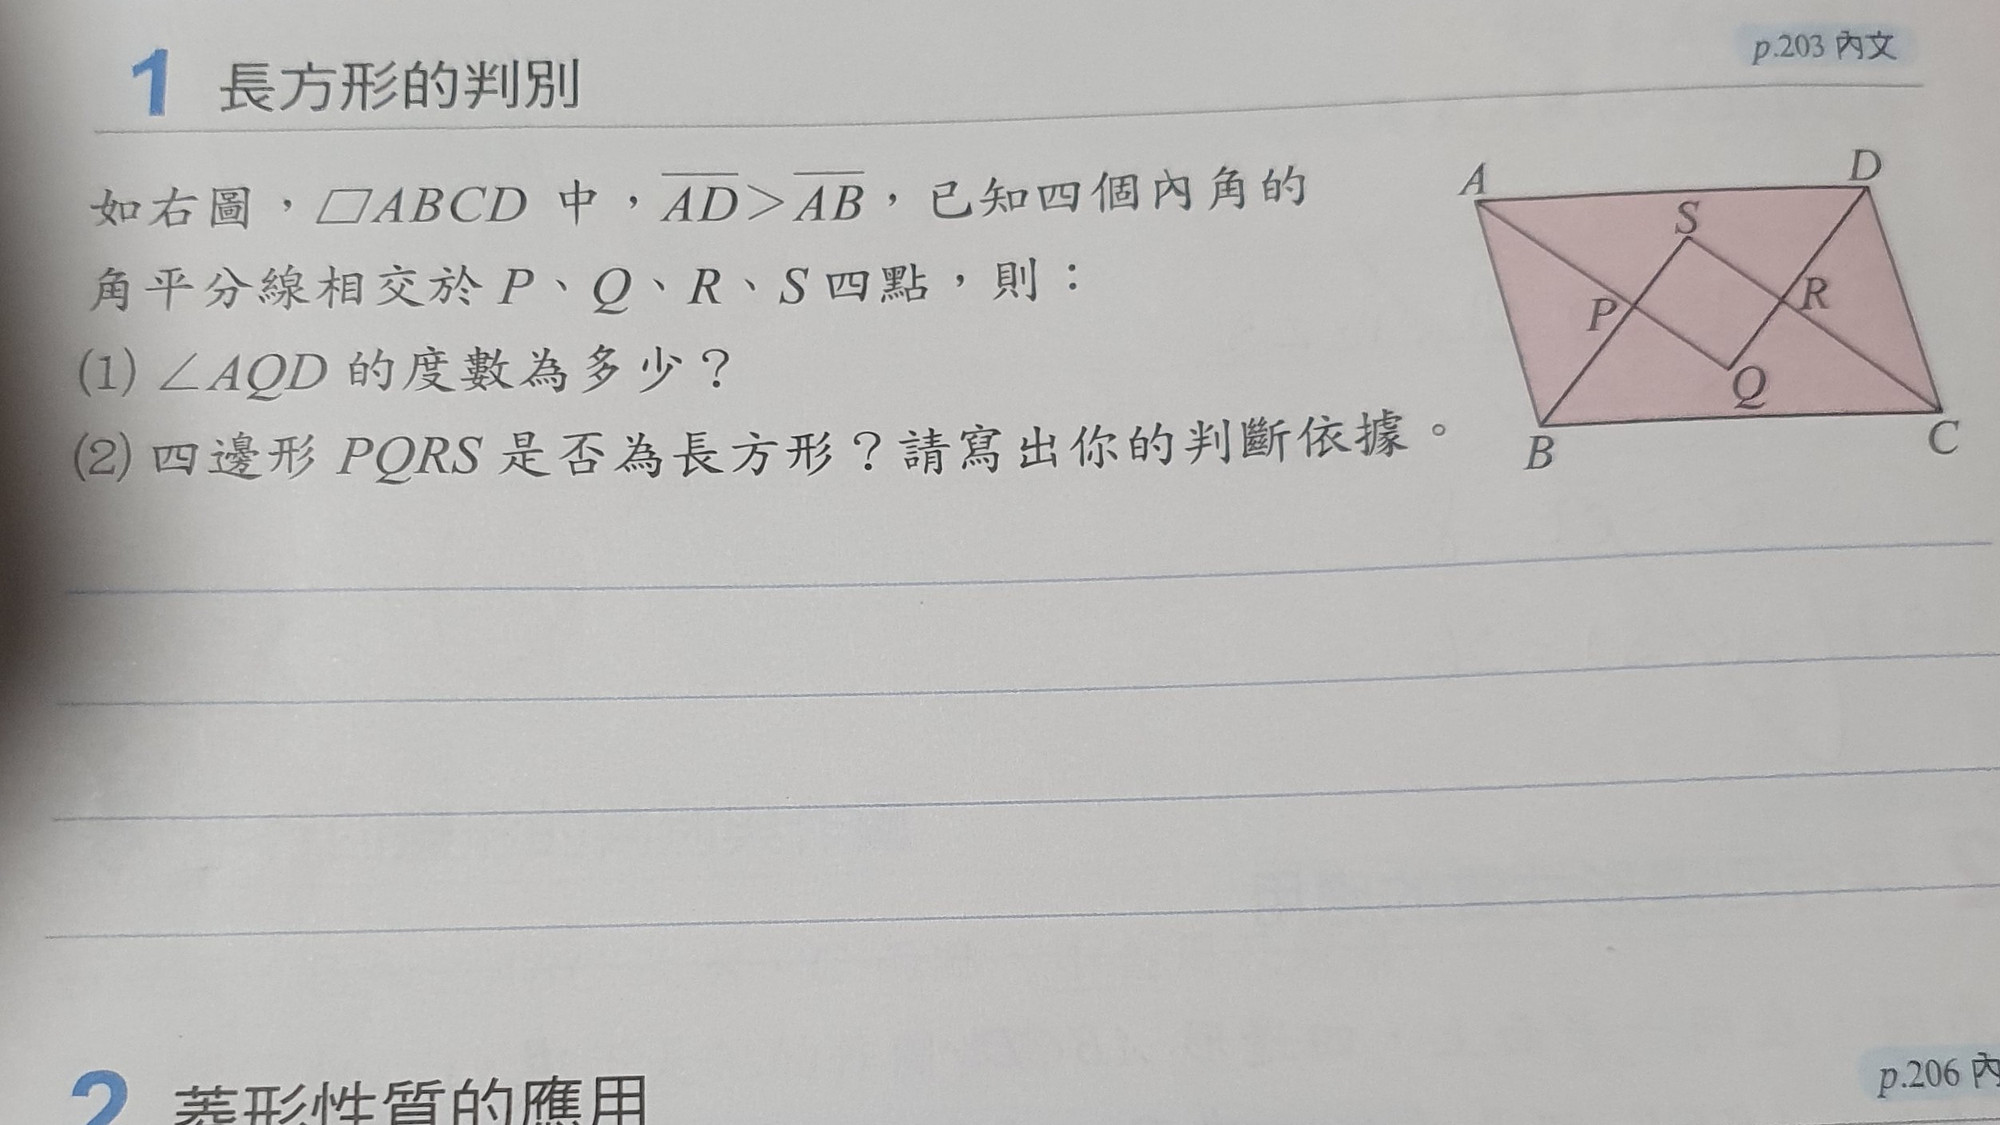 1 長方形的判別
p.203 內文
如右圖，▱ABCD 中，AD＞AB，已知四個內角的
角平分線相交於 P、Q、R、S 四點，則：
(1) ∠AQD 的度數為多少？
(2) 四邊形 PQRS 是否為長方形？請寫出你的判斷依據。
A
D
S
P
R
Q
B
C
2 菱形性質的應用
p.206 內